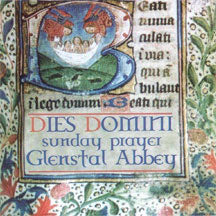 eati
culati
i via:
qui a
bulant
i lege domini Beati qui
DIES DOMINI
sunday prayer
Glenstal Abbey